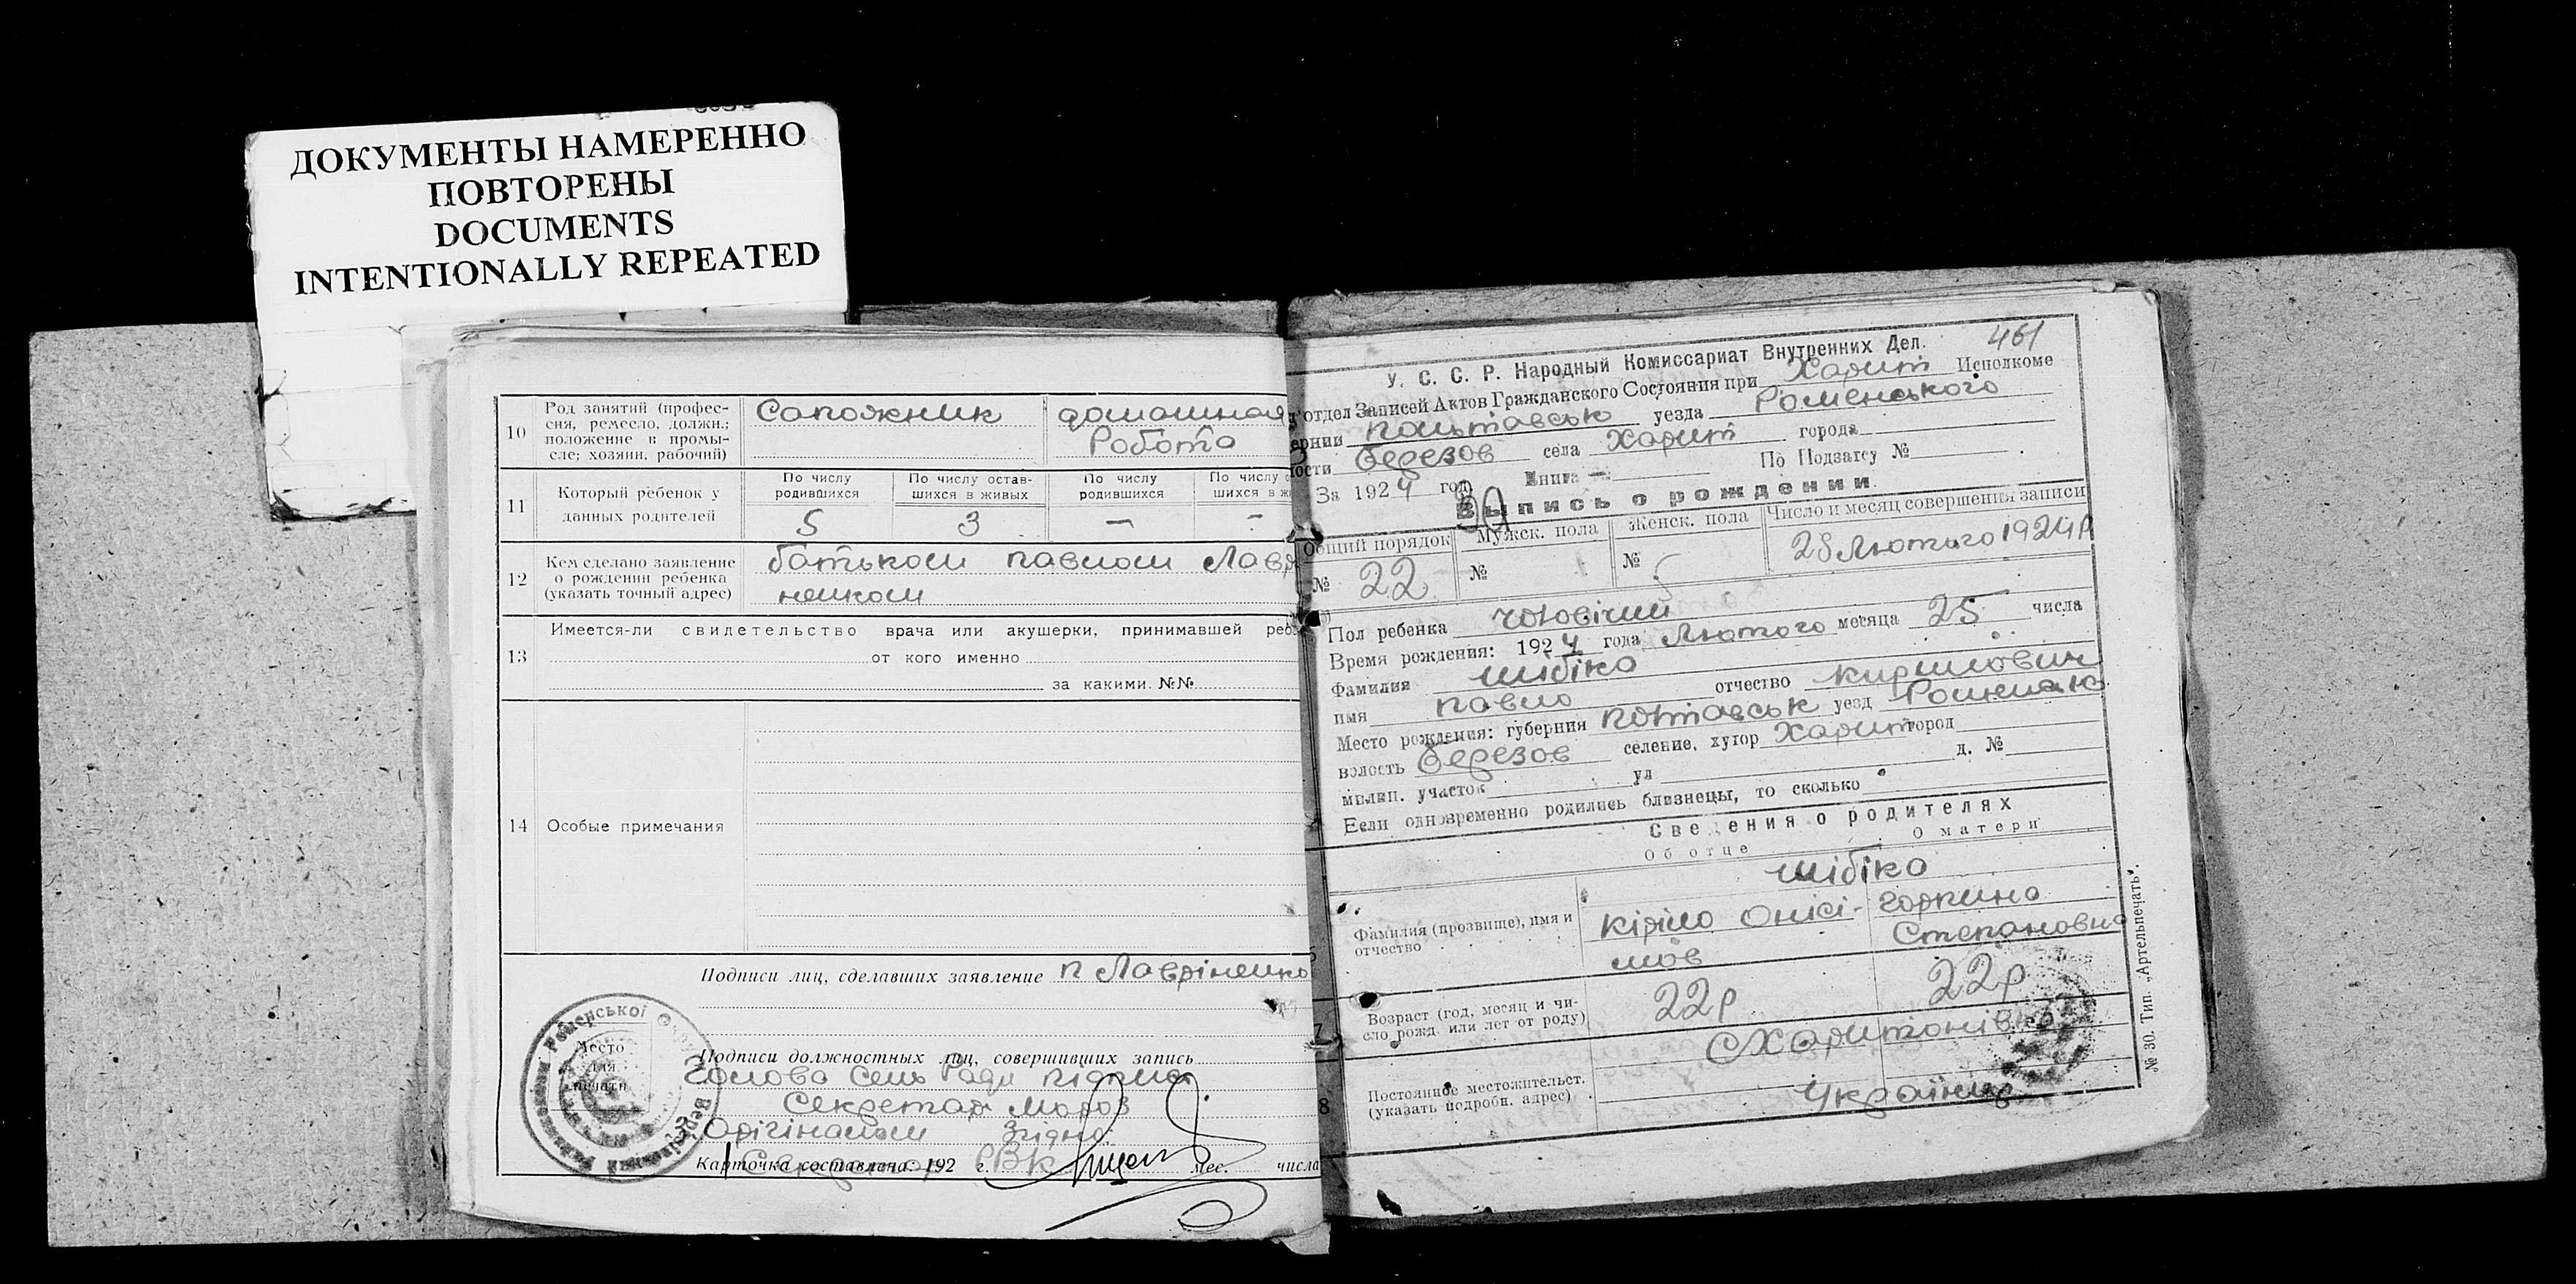 ДОКУМЕНТЫ НАМЕРЕННО
ПОВТОРЕНЫ
DOCUMENTS
INTENTIONALLY REPEATED
10 Род занятий (профес-
сия, ремесло, должн.;
положение в промы-
сле; хозяин, рабочий)
Сапожник
домашная
Робота
11 Который ребенок у
данных родителей
По числу
родившихся
По числу остав-
шихся в живых
По числу
родившихся
По числу
шихся в ж
5 3 — -
12 Кем сделано заявление
о рождении ребенка
(указать точный адрес)
батьком павлом Лавр
ненком
13 Имеется-ли свидетельство врача или акушерки, принимавшей реб
от кого именно
за какими №№
14 Особые примечания
Подписи лиц, сделавших заявление п Лавріненко
Место
для
печати
Подписи должностных лиц, совершивших запись
Голова Сель Ради підпис
Секретар Мороз
Орігіналом Згідно
Карточка составлена: 192 г. мес. числа
Секретар РВК
461
У. С. С. Р. Народный Комиссариат Внутренних Дел.
отдел Записей Актов Гражданского Состояния при Харит Исполкоме
ернии Полтавськ уезда Роменського
ости Березов села Харит города
За 1924 год Книга — По Подзагсу №
Выпись о рождении
Общий порядок Мужск. пола Женск. пола Число и месяц совершения записи
№ 22 № № 28 Лютого 1924 р
Пол ребенка чоловічий
Время рождения: 1924 года Лютого месяца 25 числа
Фамилия Шібіко
имя Павло отчество Кирилович
Место рождения: губерния Полтавськ уезд
волость Березов селение, хутор Харит город
милиц. участок ул д. №
Если одновременно родились близнецы, то сколько
Сведения о родителях
Об отце О матери
Шібіко
Фамилия (прозвище), имя и
отчество
Кіріло Онісі-
мов
Горпина
Степановна
7 Возраст (год, месяц и чи-
сло рожд. или лет от роду)
22р 22р
8 Постоянное местожительст.
(указать подробн. адрес)
С Харитонівка
Українці
№ 30. Тип. „Артельпечать".